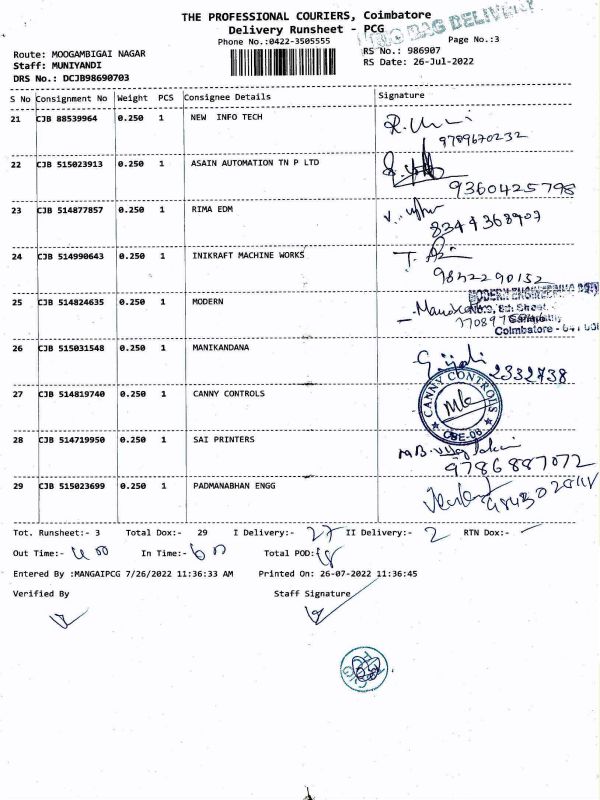 THE PROFESSIONAL COURIERS, Coimbatore
Delivery Runsheet - PCG
BAG DELIVERY
Phone No.:0422-3505555
Page No.:3
Route: MOOGAMBIGAI NAGAR
RS No.: 986907
Staff: MUNIYANDI
RS Date: 26-Jul-2022
DRS No.: DCJB98690703
S No Consignment No Weight PCS Consignee Details Signature
21 CJB 88539964 0.250 1 NEW INFO TECH
9789670232
22 CJB 515023913 0.250 1 ASAIN AUTOMATION TN P LTD
9360425798
23 CJB 514877857 0.250 1 RIMA EDM
8344368907
24 CJB 514990643 0.250 1 INIKRAFT MACHINE WORKS
9842290152
25 CJB 514824635 0.250 1 MODERN
MODERN ENGINEERING
8th Street,
Coimbatore - 641 00
26 CJB 515031548 0.250 1 MANIKANDANA
2332738
27 CJB 514819740 0.250 1 CANNY CONTROLS
CANNY CONTROLS
CBE-06
28 CJB 514719950 0.250 1 SAI PRINTERS
9786887072
29 CJB 515023699 0.250 1 PADMANABHAN ENGG
Tot. Runsheet:- 3 Total Dox:- 29 I Delivery:- 27 II Delivery:- 2 RTN Dox:- —
Out Time:- In Time:- Total POD:
Entered By :MANGAIPCG 7/26/2022 11:36:33 AM Printed On: 26-07-2022 11:36:45
Verified By Staff Signature